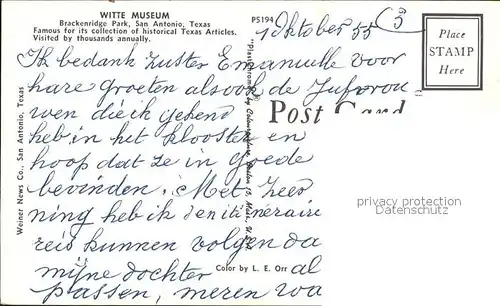 WITTE MUSEUM
Brackenridge Park, San Antonio, Texas
Famous for its collection of historical Texas Articles.
Visited by thousands annually.
PS194
1 Oktober 55
Place
STAMP
Here
Ik bedank zuster Emanuelle voor
hare groeten alsook de Jufvrou
wen die ik gekend
heb in het klooster en
hoop dat ze in goede
bevinden. Met
ning heb ik den itinéraire
reis kunnen volgen da
mijne dochter al
passen,
Post Card
Weiner News Co., San Antonio, Texas
"Plastichrome" by Colourpicture, Boston 15, Mass., U.S.A.
Color by L. E. Orr
privacy protection
Datenschutz